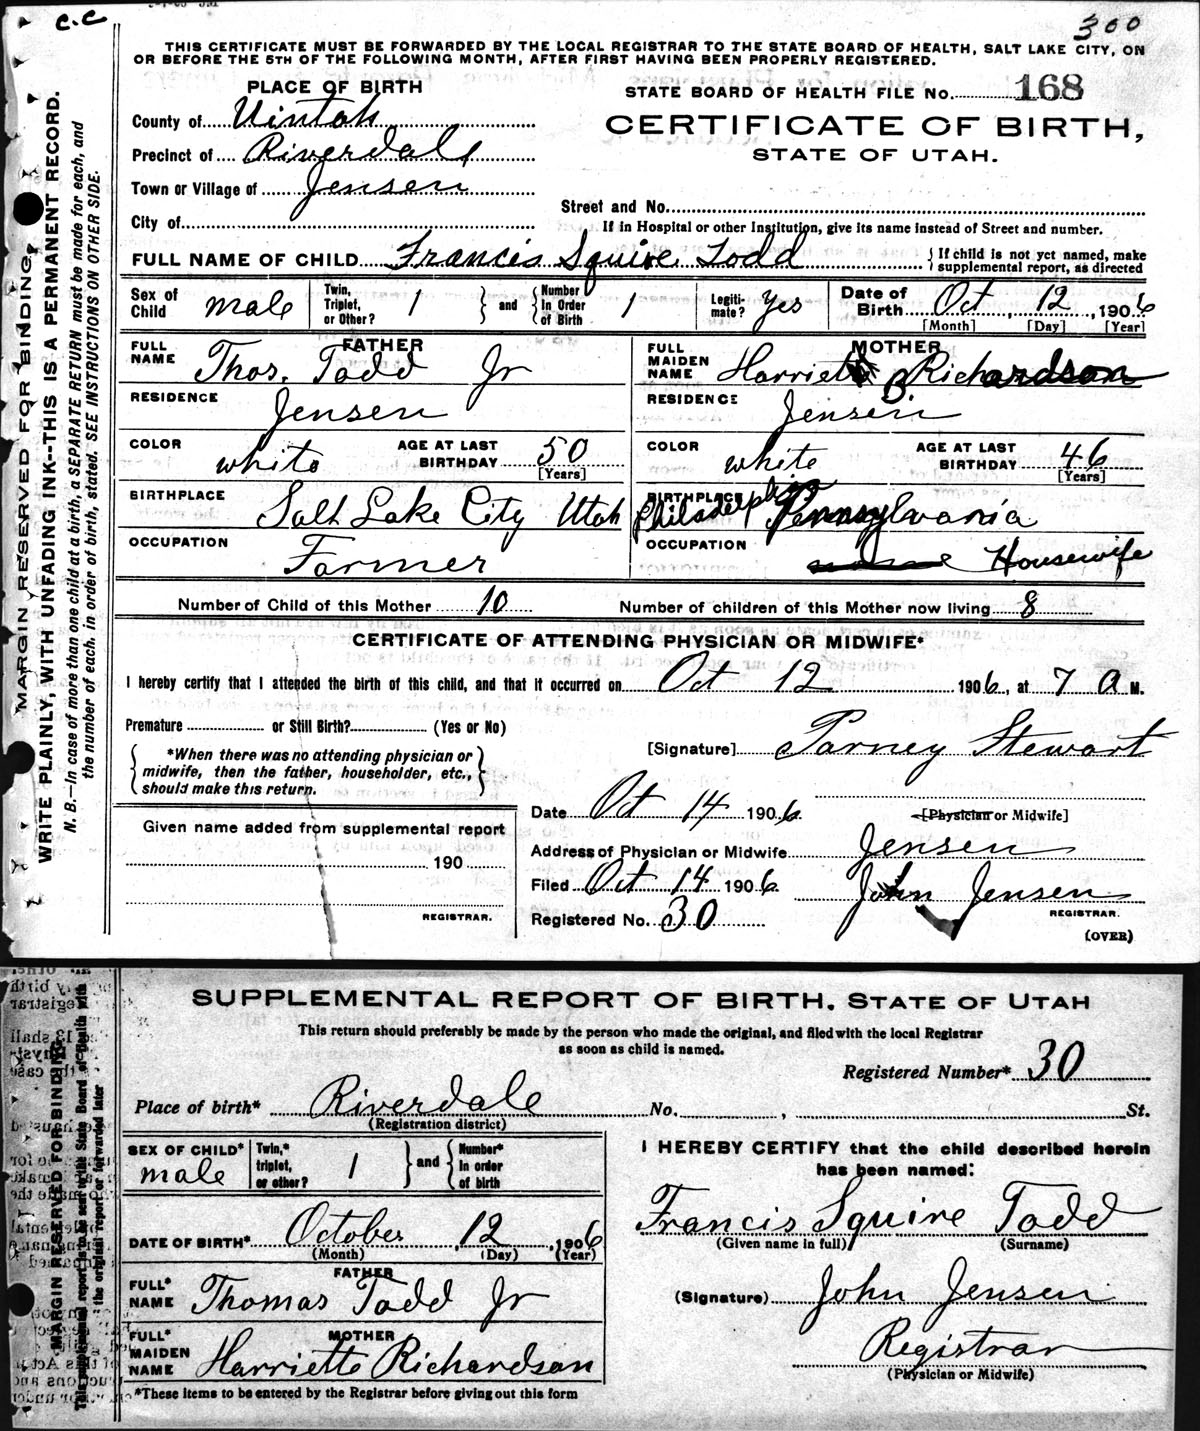 c.c
300
THIS CERTIFICATE MUST BE FORWARDED BY THE LOCAL REGISTRAR TO THE STATE BOARD OF HEALTH, SALT LAKE CITY, ON
OR BEFORE THE 5TH OF THE FOLLOWING MONTH, AFTER FIRST HAVING BEEN PROPERLY REGISTERED.
MARGIN RESERVED FOR BINDING.
WRITE PLAINLY, WITH UNFADING INK--THIS IS A PERMANENT RECORD.
N. B.—In case of more than one child at a birth, a SEPARATE RETURN must be made for each, and
the number of each, in order of birth, stated. SEE INSTRUCTIONS ON OTHER SIDE.
PLACE OF BIRTH
County of Uintah
Precinct of Riverdale
Town or Village of Jensen
City of
STATE BOARD OF HEALTH FILE No. 168
CERTIFICATE OF BIRTH,
STATE OF UTAH.
Street and No.
If in Hospital or other Institution, give its name instead of Street and number.
FULL NAME OF CHILD Francis Squire Todd { If child is not yet named, make
supplemental report, as directed
Sex of Child male
Twin, Triplet, or Other? 1 } and { Number In Order of Birth 1
Legiti-mate? Yes
Date of Birth Oct 12, 1906
[Month] [Day] [Year]
FATHER
FULL NAME Thos. Todd Jr
RESIDENCE Jensen
COLOR white AGE AT LAST BIRTHDAY 50
[Years]
BIRTHPLACE Salt Lake City Utah
OCCUPATION Farmer
MOTHER
FULL MAIDEN NAME Harriett B. Richardson
RESIDENCE Jensen
COLOR white AGE AT LAST BIRTHDAY 46
[Years]
BIRTHPLACE Philadelphia Pennsylvania
OCCUPATION Housewife
Number of Child of this Mother 10 Number of children of this Mother now living 8
CERTIFICATE OF ATTENDING PHYSICIAN OR MIDWIFE*
I hereby certify that I attended the birth of this child, and that it occurred on Oct 12 1906, at 7 A M.
Premature or Still Birth? (Yes or No)
*When there was no attending physician or
midwife, then the father, householder, etc.,
should make this return.
[Signature] Parney Stewart
[Physician or Midwife]
Given name added from supplemental report
190
REGISTRAR.
Date Oct 14 1906
Address of Physician or Midwife Jensen
Filed Oct 14 1906 John Jensen
REGISTRAR.
Registered No. 30
(OVER)
SUPPLEMENTAL REPORT OF BIRTH. STATE OF UTAH
This return should preferably be made by the person who made the original, and filed with the local Registrar
as soon as child is named.
Registered Number* 30
MARGIN RESERVED FOR BINDING
Place of birth* Riverdale No. , St.
(Registration district)
SEX OF CHILD* male
Twin,* triplet, or other? 1 } and { Number* In order of birth
DATE OF BIRTH* October, 12, 1906
(Month) (Day) (Year)
FATHER
FULL* NAME Thomas Todd Jr
MOTHER
FULL* MAIDEN NAME Harriette Richardson
*These items to be entered by the Registrar before giving out this form
I HEREBY CERTIFY that the child described herein
has been named:
Francis Squire Todd
(Given name in full) (Surname)
(Signature) John Jensen
Registrar
(Physician or Midwife)